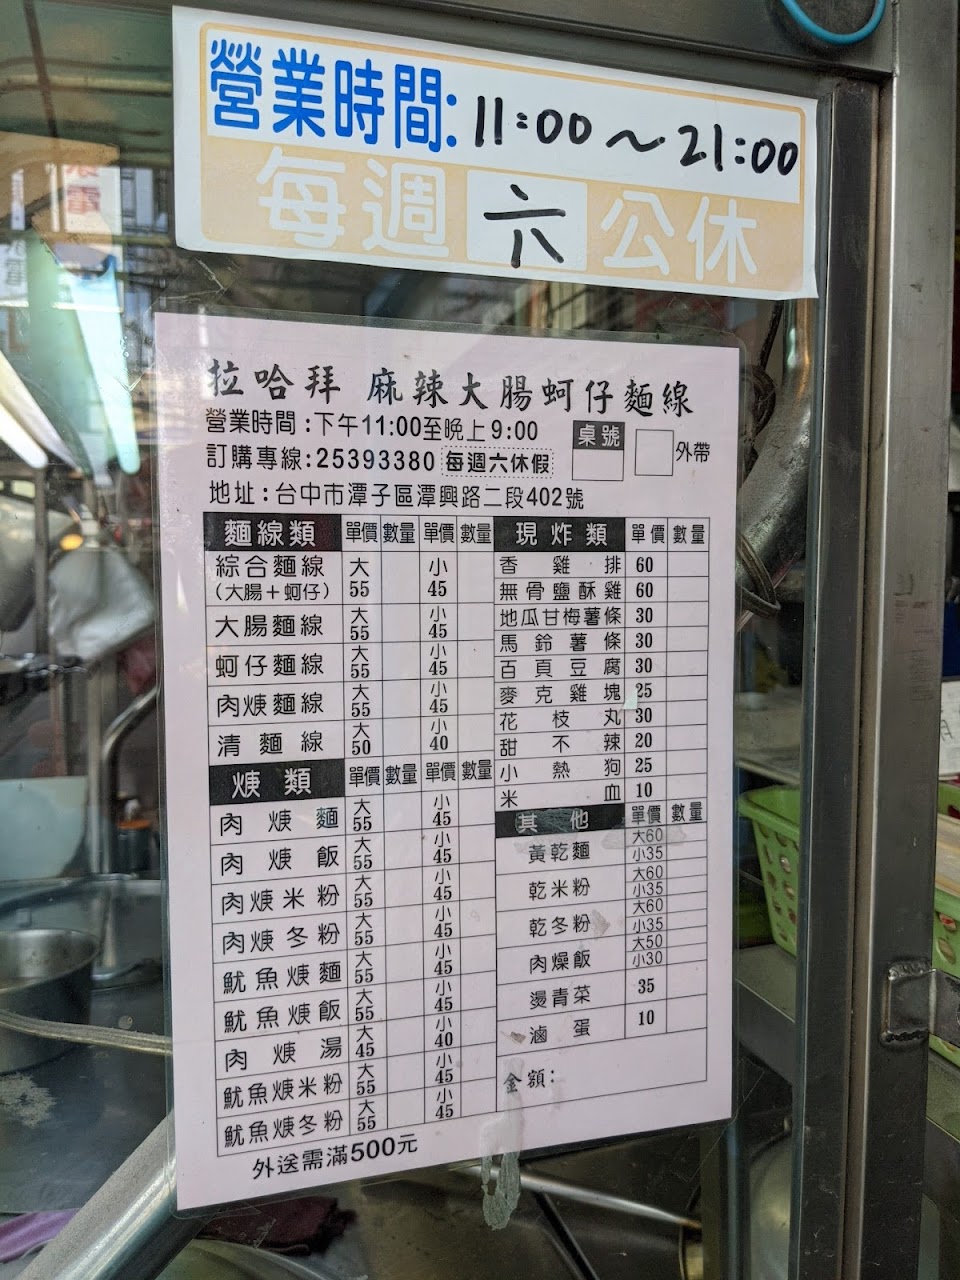 營業時間: 11:00～21:00
每週六公休
拉哈拜 麻辣大腸蚵仔麵線
營業時間:下午11:00至晚上9:00
訂購專線:25393380 每週六休假
桌號 外帶
地址:台中市潭子區潭興路二段402號
麵線類 單價 數量 單價 數量
綜合麵線 大 小
(大腸+蚵仔) 55 45
大腸麵線 大55 小45
蚵仔麵線 大55 小45
肉焿麵線 大55 小45
清麵線 大50 小40
焿類 單價 數量 單價 數量
肉焿麵 大55 小45
肉焿飯 大55 小45
肉焿米粉 大55 小45
肉焿冬粉 大55 小45
魷魚焿麵 大55 小45
魷魚焿飯 大55 小45
肉焿湯 大45 小40
魷魚焿米粉 大55 小45
魷魚焿冬粉 大55 小45
外送需滿500元
現炸類 單價 數量
香雞排 60
無骨鹽酥雞 60
地瓜甘梅薯條 30
馬鈴薯條 30
百頁豆腐 30
麥克雞塊 25
花枝丸 30
甜不辣 20
小熱狗 25
米血 10
其他 單價 數量
黃乾麵 大60 小35
乾米粉 大60 小35
乾冬粉 大60 小35
肉燥飯 大50 小30
燙青菜 35
滷蛋 10
金額: